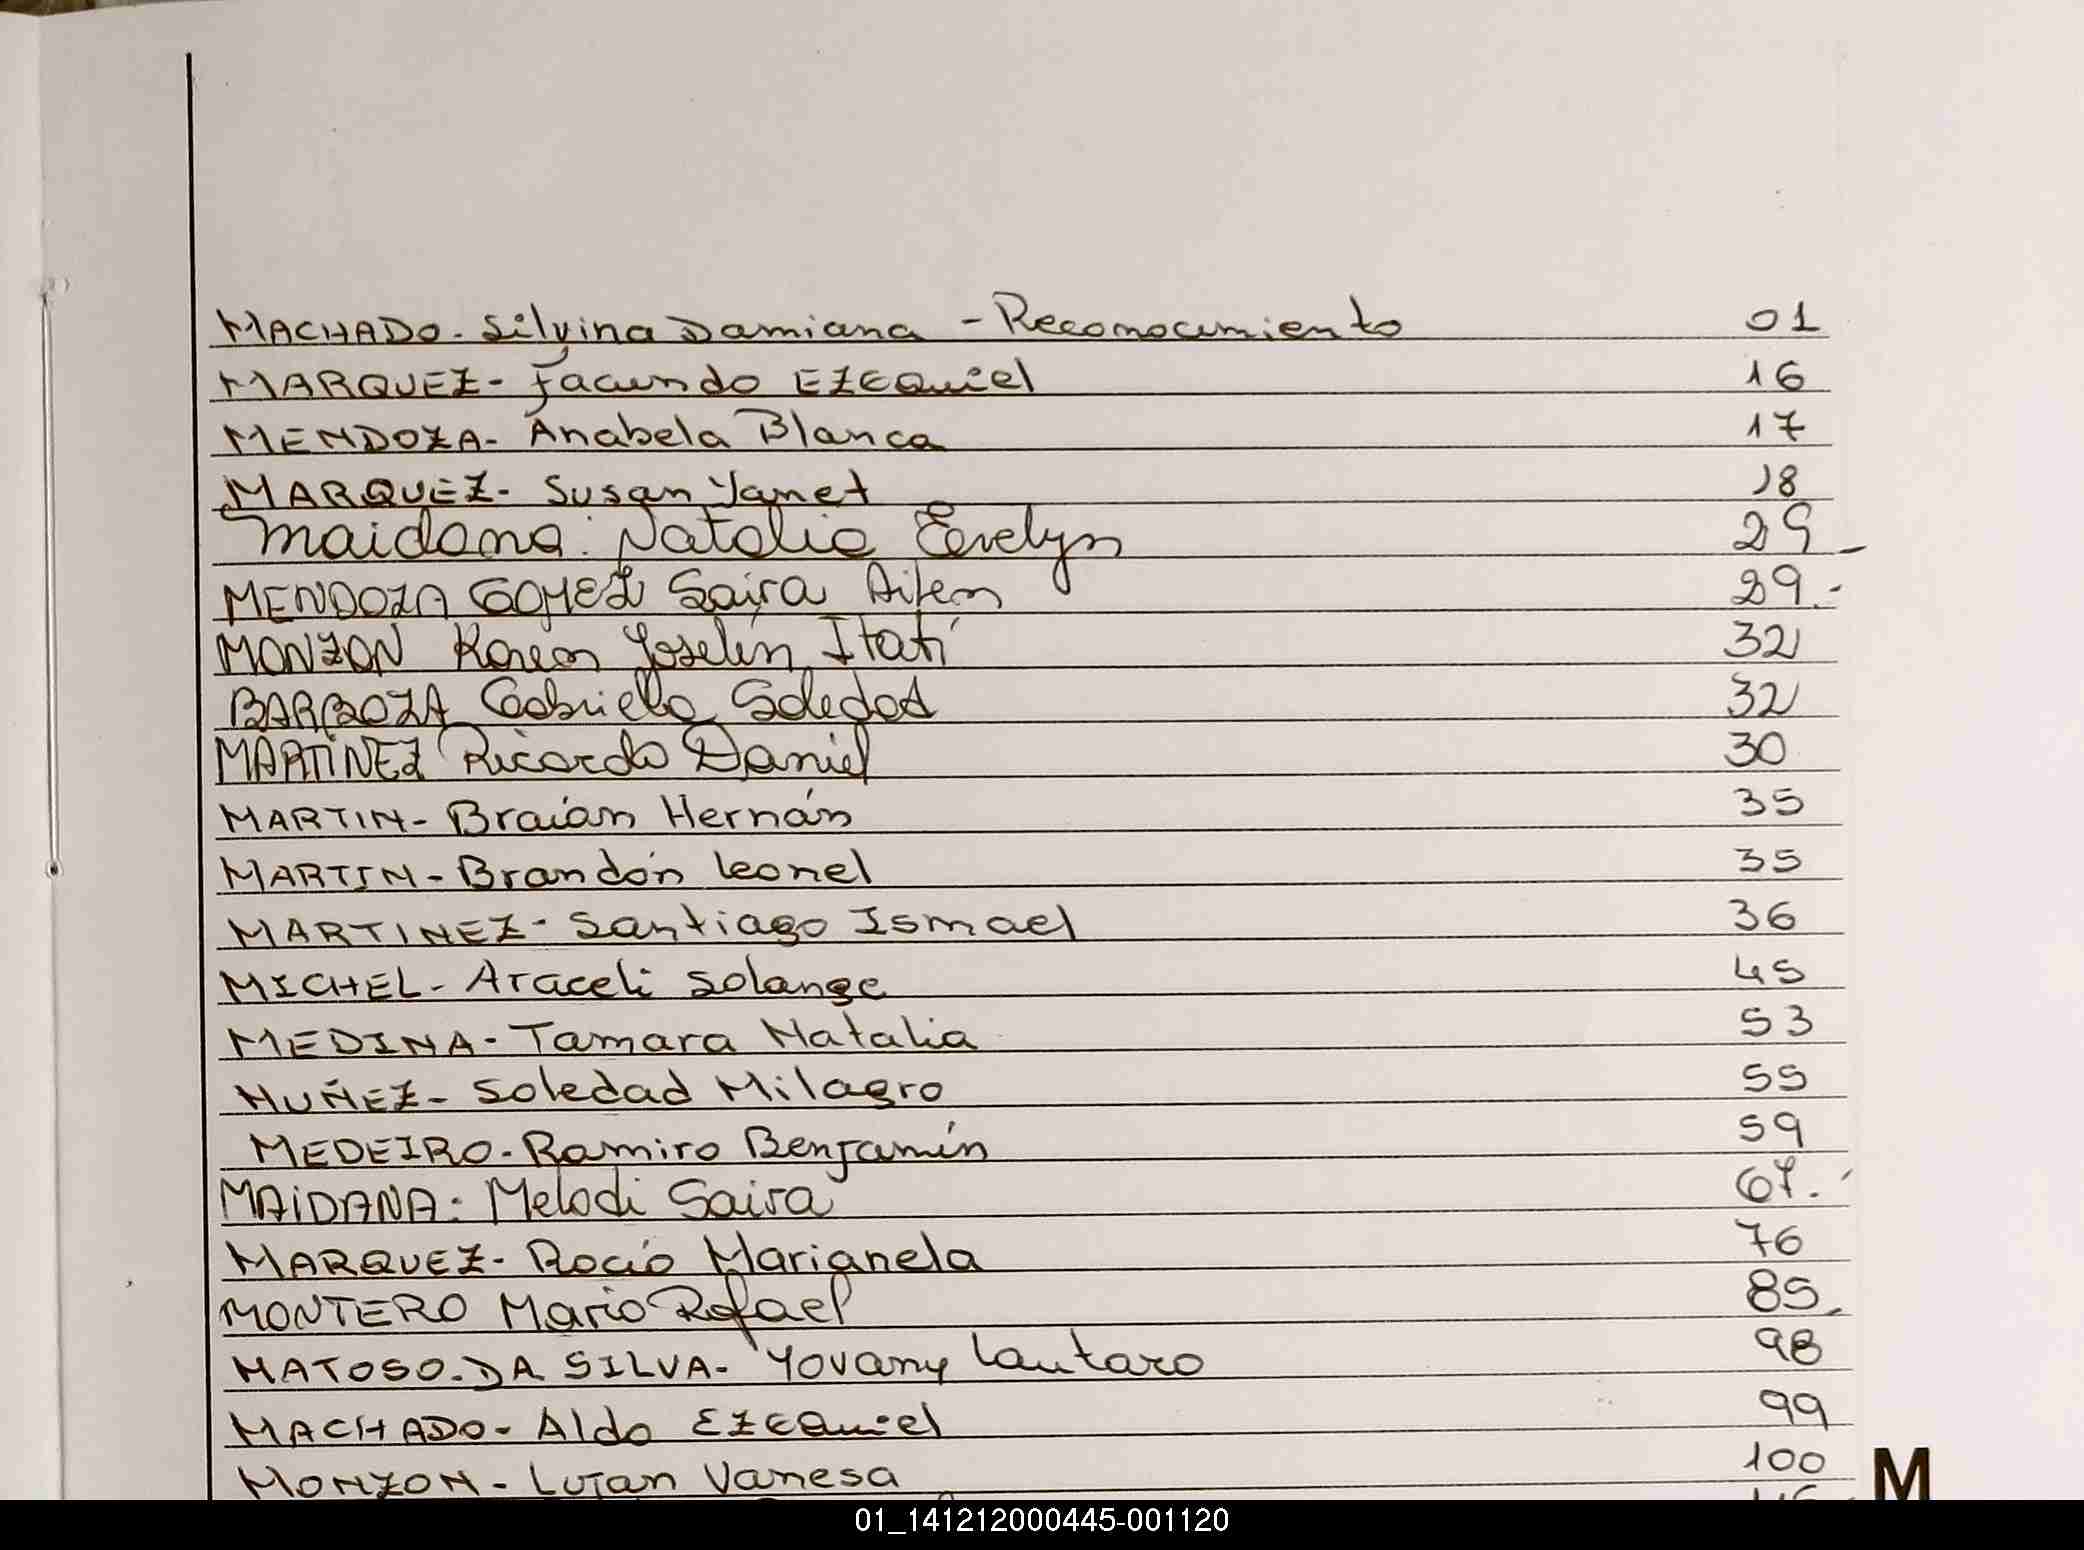 MACHADO - Silvina Damiana - Reconocimiento 01
MARQUEZ - Facundo EZEQuiel 16
MENDOZA - Anabela Blanca 17
MARQUEZ - Susan Yanet 18
Maidana. Natalia Evelyn 29 -
MENDOZA GOMEZ Saira Ailen 29.-
MONZON Karen Joselin Itatí 32
BARBOZA Gabriela Soledad 32
MARTÍNEZ Ricardo Daniel 30
MARTIN - Braián Hernán 35
MARTIN - Brandón Leonel 35
MARTINEZ - Santiago Ismael 36
MICHEL - Araceli Solange 45
MEDINA - Tamara Natalia 53
NUÑEZ - Soledad Milagro 55
MEDEIRO - Ramiro Benjamín 59
MAIDANA: Melodi Saira 67.
MARQUEZ - Rocío Marianela 76
MONTERO Mario Rafael 85.
MATOSO - DA SILVA - Yovany Lautaro 98
MACHADO - Aldo EZEQuiel 99
MONZON - Lujan Vanesa 100
M
01_141212000445-001120